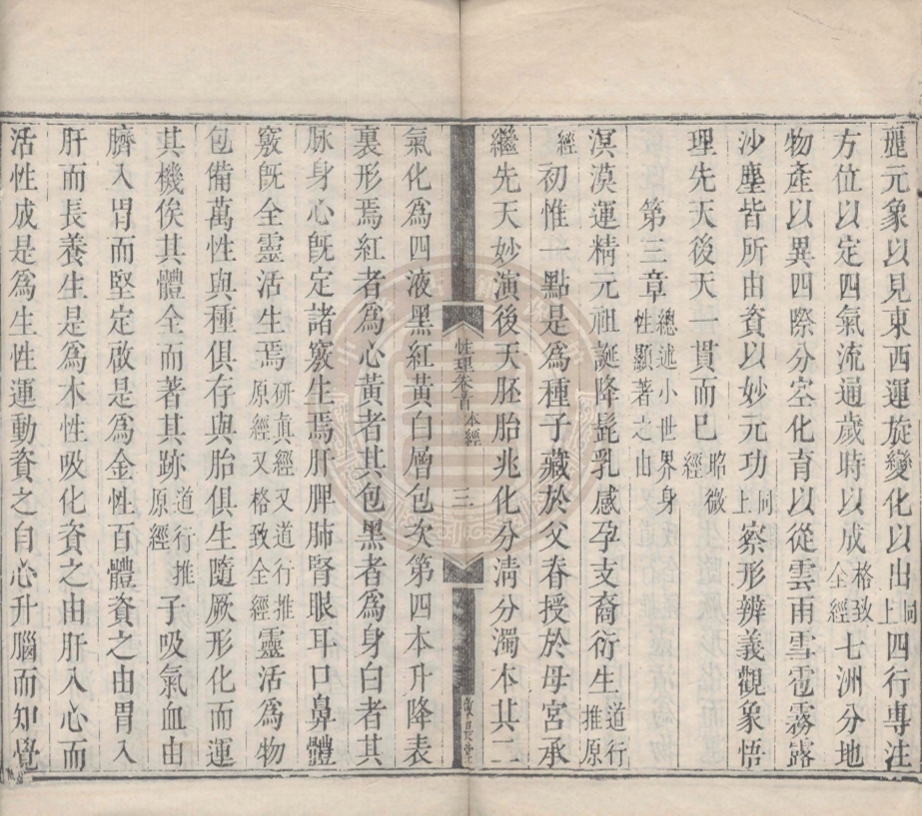 麗元象以見東西運旋變化以出同上四行專注
方位以定四氣流通歲時以成格致全經七洲分地
物產以異四際分空化育以從雲雨雪雹霧露
沙塵皆所由資以妙元功同上察形辨義觀象悟
理先天後天一貫而已昭微經
第三章總述小世界身性顯著之由
溟漠運精元祖誕降髭乳感孕支裔衍生道行推原
經初惟一點是為種子藏於父脊授於母宮承
繼先天妙演後天胚胎兆化分清分濁本其二
性理卷首 本經 三
氣化為四液黑紅黃白層包次第四本升降表
裏形焉紅者為心黃者其包黑者為身白者其
脉身心旣定諸竅生焉肝脾肺腎眼耳口鼻體
竅旣全靈活生焉研真經又道行推原經又格致全經靈活為物
包備萬性與種俱存與胎俱生隨厥形化而運
其機俟其體全而著其跡道行推原經子吸氣血由
臍入胃而堅定啟是為金性百體資之由胃入
肝而長養生是為木性吸化資之由肝入心而
活性成是為生性運動資之自心升腦而知覺